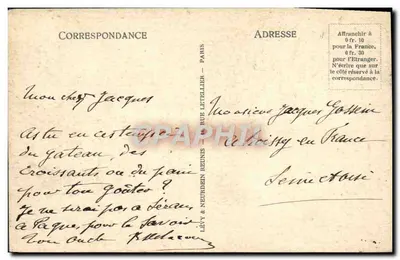 CORRESPONDANCE
Mon cher Jacques
As tu en ces temps
du gateau, des
croissants ou du pain
pour ton goûter ?
Je ne serai pas à
à Paques pour la
ton oncle
LÉVY & NEURDEIN RÉUNIS - RUE LETELLIER - PARIS
ADRESSE
Affranchir à
0 fr. 10
pour la France,
0 fr. 30
pour l'Etranger.
N'écrire que sur
le côté réservé à la
correspondance.
Monsieur Jacques
à Roissy en France
Seine et Oise
CPARAMA